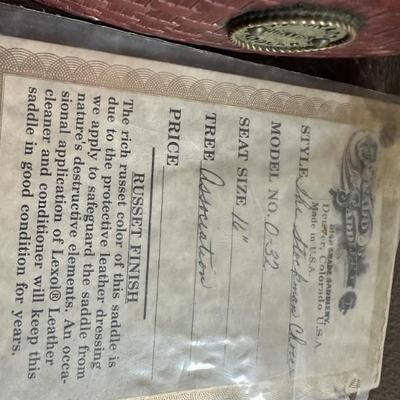 SADDLERY Co.
HIGH GRADE SADDLERY
Denver, Colorado U.S.A.
Made in U.S.A.
STYLE The Stockman Choice
MODEL NO. 0-32
SEAT SIZE 16"
TREE Association
PRICE
RUSSET FINISH
The rich russet color of this saddle is
due to the protective leather dressing
we apply to safeguard the saddle from
nature's destructive elements. An occa-
sional application of Lexol® Leather
cleaner and conditioner will keep this
saddle in good condition for years.